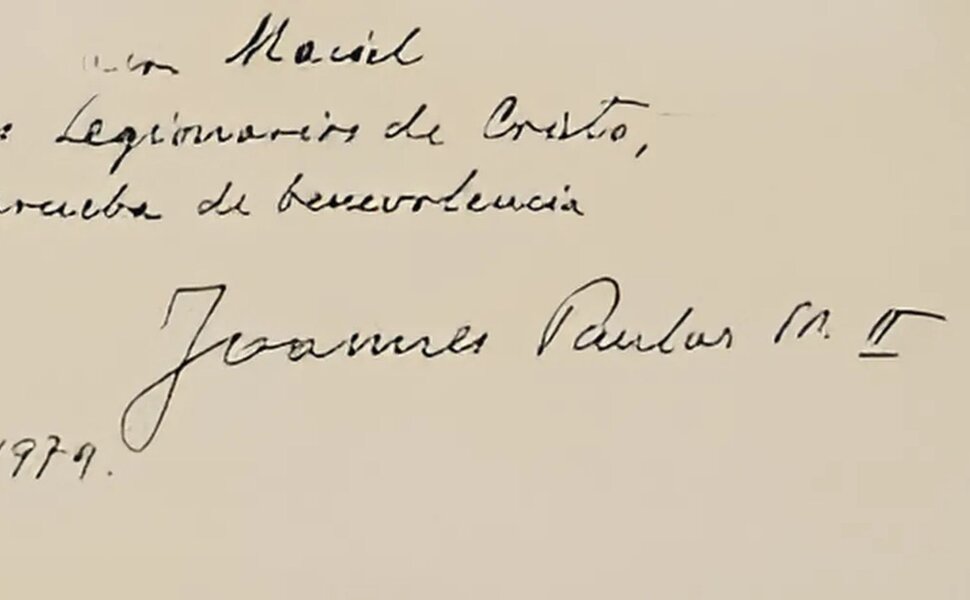 Maciel
Legionarios de Cristo,
de benevolencia
Joannes Paulus II
1979.